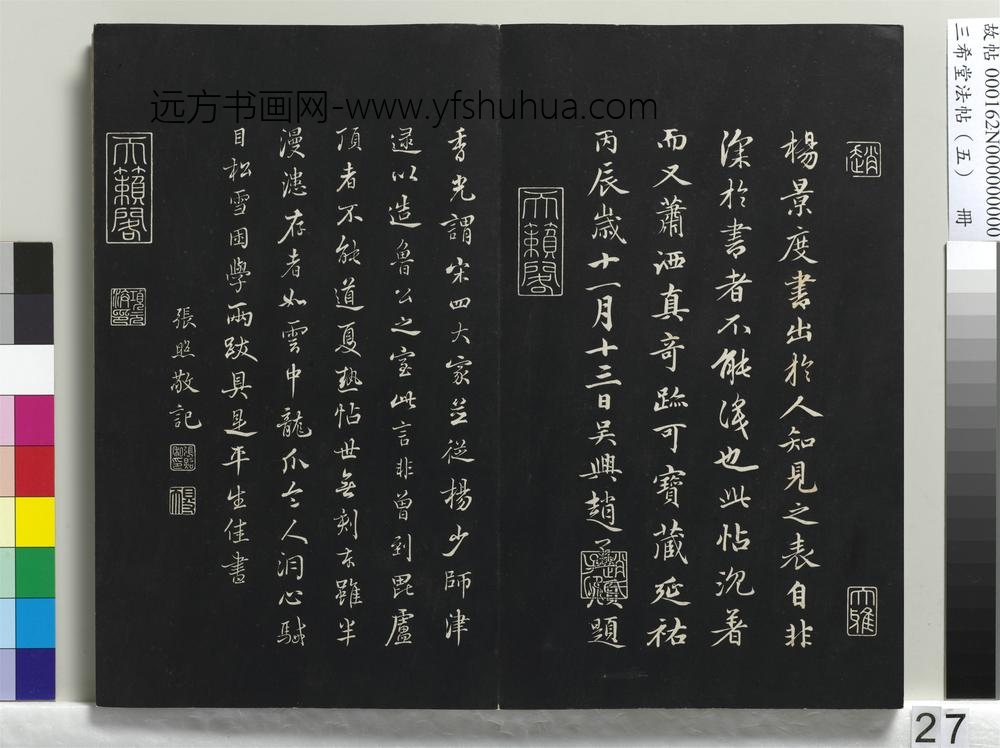 远方书画网-www.yfshuhua.com
故帖000162N000000000
三希堂法帖（五） 册
趙
大雅
楊景度書出於人知見之表自非
深於書者不能識也此帖沉著
而又蕭洒真奇跡可寶藏延祐
丙辰歲十一月十三日吳興趙孟頫題
天籟閣
香光謂宋四大家並從楊少師津
逮以造魯公之室此言非曾到毘盧
頂者不能道夏熱帖世無刻本雖半
漫漶存者如雲中龍爪令人洞心駴
目松雪困學兩跋具是平生佳書
張照敬記
天籟閣
27